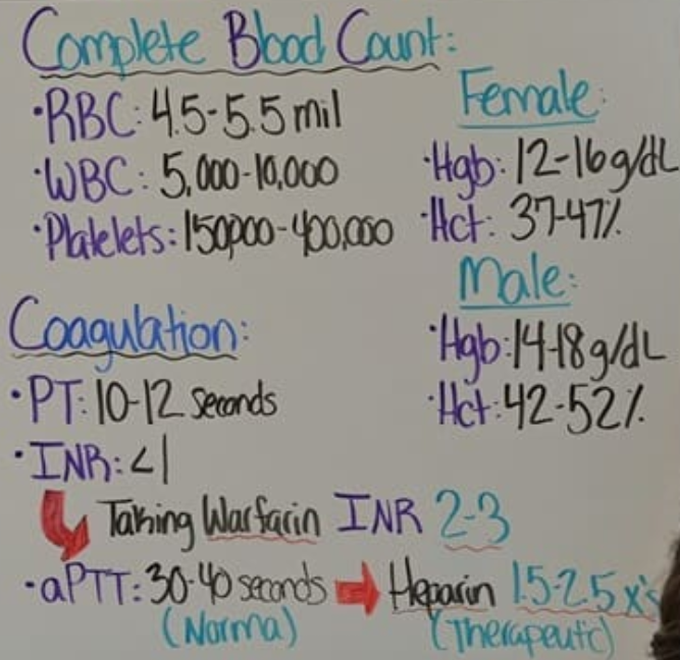 Complete Blood Count:
·RBC: 4.5-5.5 mil
·WBC: 5,000-10,000
·Platelets: 150,000-400,000
Female:
·Hgb: 12-16 g/dL
·Hct: 37-47%
Male:
·Hgb: 14-18 g/dL
·Hct: 42-52%
Coagulation:
·PT: 10-12 seconds
·INR: <1
Taking Warfarin INR 2-3
·aPTT: 30-40 seconds Heparin 1.5-2.5 x's
(Norma) (Therapeutc)